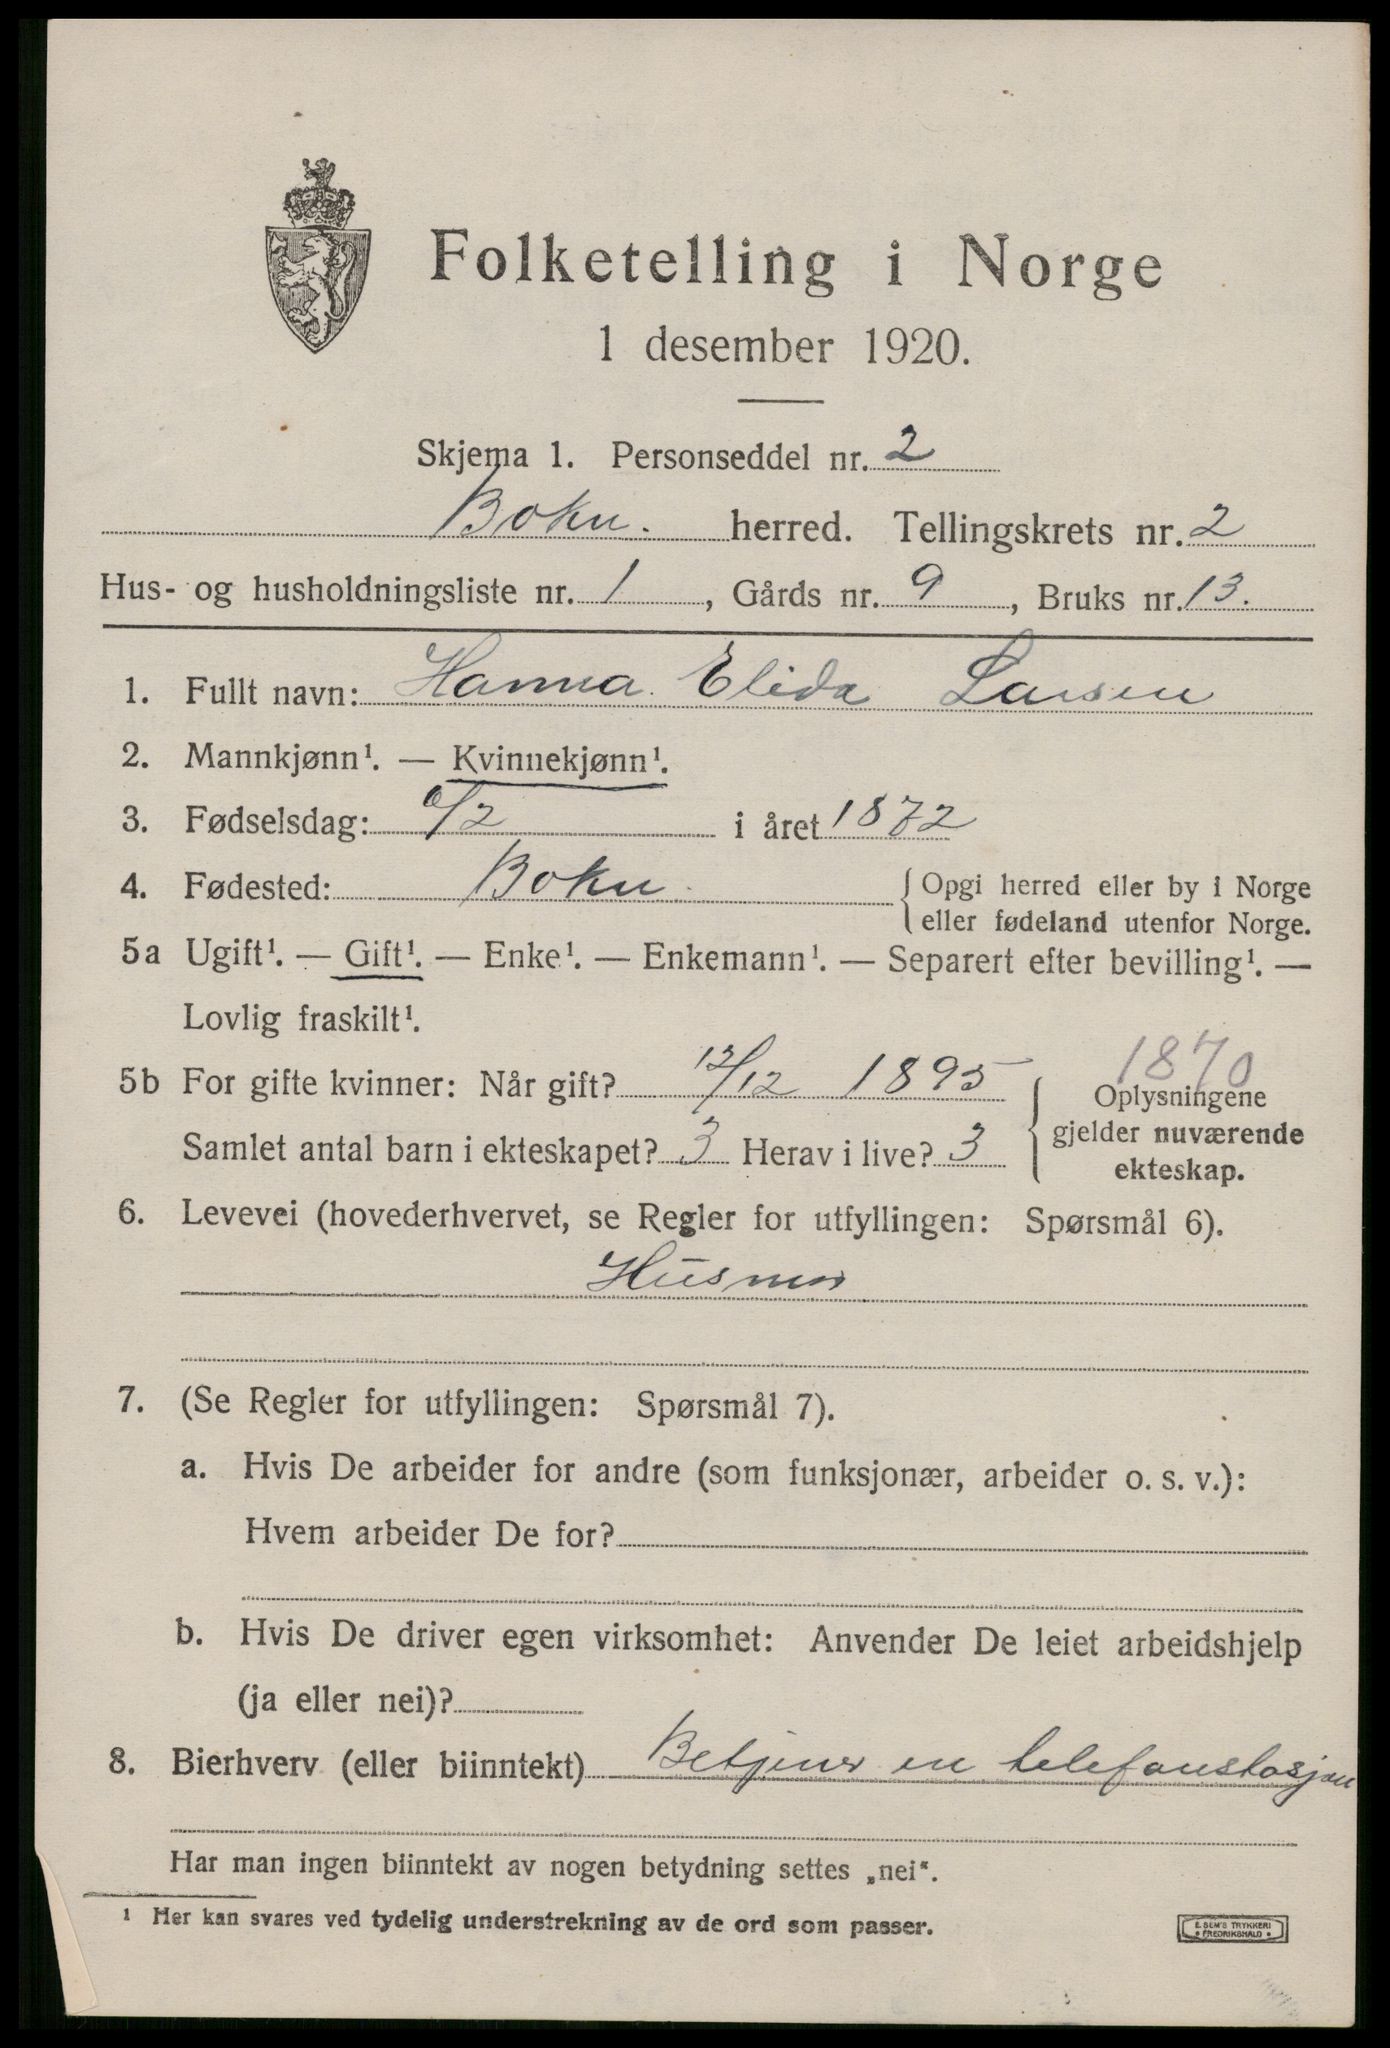 Folketelling i Norge
1 desember 1920.
Skjema 1. Personseddel nr. 2
Bokn. herred. Tellingskrets nr. 2
Hus- og husholdningsliste nr. 1, Gårds nr. 9, Bruks nr. 13.
1. Fullt navn: Hanna Elida Larsen
2. Mannkjønn¹. — Kvinnekjønn¹.
3. Fødselsdag: 6/2 i året 1872
4. Fødested: Bokn. {Opgi herred eller by i Norge
eller fødeland utenfor Norge.
5a Ugift¹. — Gift¹. — Enke¹. — Enkemann¹. — Separert efter bevilling¹. —
Lovlig fraskilt¹.
1870
5b For gifte kvinner: Når gift? 12/12 1895 {Oplysningene
gjelder nuværende
Samlet antal barn i ekteskapet? 3 Herav i live? 3
ekteskap.
6. Levevei (hovederhvervet, se Regler for utfyllingen: Spørsmål 6).
Husmor
7. (Se Regler for utfyllingen: Spørsmål 7).
a. Hvis De arbeider for andre (som funksjonær, arbeider o. s. v.):
Hvem arbeider De for?
b. Hvis De driver egen virksomhet: Anvender De leiet arbeidshjelp
(ja eller nei)?
8. Bierhverv (eller biinntekt) Betjener en telefonstasjon
Har man ingen biinntekt av nogen betydning settes „nei“.
¹ Her kan svares ved tydelig understrekning av de ord som passer.
E. SEM'S TRYKKERI
• FREDRIKSHALD •